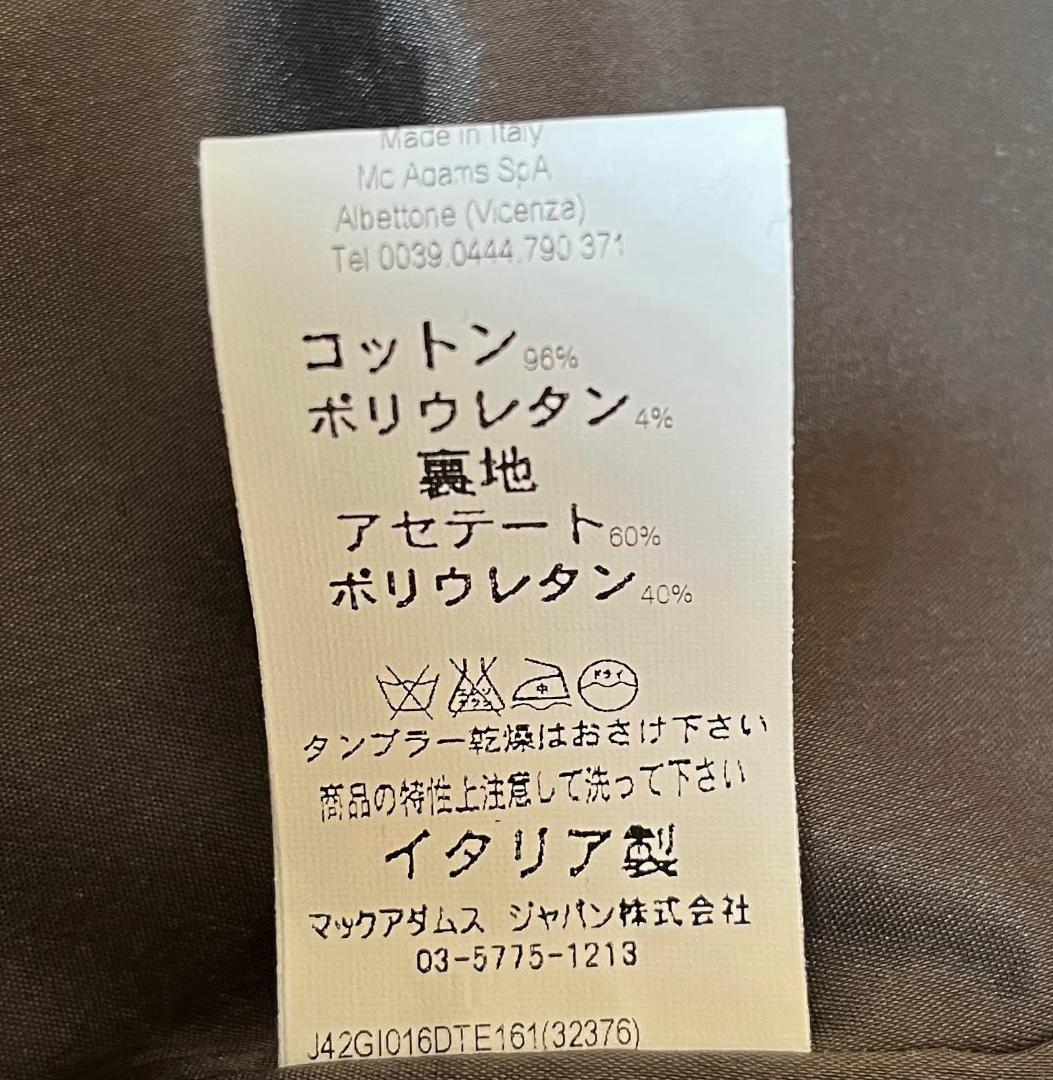 Made in Italy
Mc Adams SpA
Albettone (Vicenza)
Tel 0039.0444.790 371
コットン96%
ポリウレタン4%
裏地
アセテート60%
ポリウレタン40%
中 ドライ
タンブラー乾燥はおさけ下さい
商品の特性上注意して洗って下さい
イタリア製
マックアダムス ジャパン株式会社
03-5775-1213
J42GI016DTE161(32376)